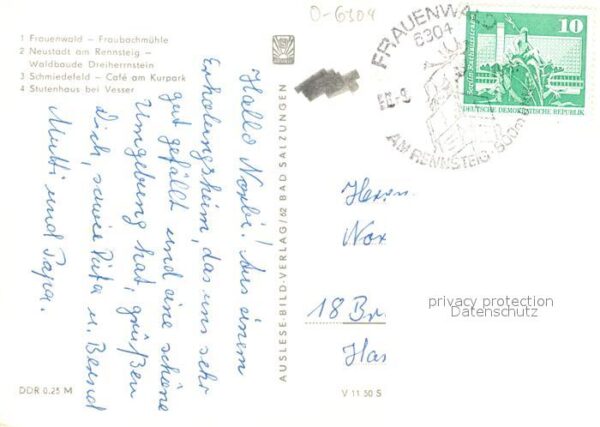 1 Frauenwald – Fraubachmühle
2 Neustadt am Rennsteig –
Waldbaude Dreiherrnstein
3 Schmiedefeld – Café am Kurpark
4 Stutenhaus bei Vesser
Hallo Norbi! Aus einem
Erholungsheim, das uns sehr
gut gefällt und eine schöne
Umgebung hat, grüßen
Dich, sowie Rita u. Bernd
Mutti und Papa.
DDR 0.25 M
AUSLESE-BILD-VERLAG/62 BAD SALZUNGEN
V 11 50 S
O-6304
FRAUENWALD
6304
AM RENNSTEIG
10
DEUTSCHE DEMOKRATISCHE REPUBLIK
Herrn
Nor
18 Br.
Has
privacy protection
Datenschutz